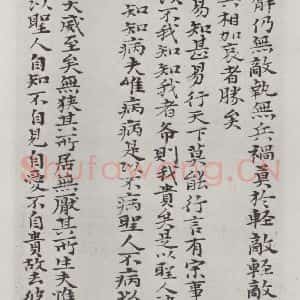 仍無敵執無兵禍莫於輕敵輕敵
相加哀者勝矣
易知甚易行天下莫能行言有宗事
以不我知知我者希則我貴矣是以聖人
知知病夫唯病病是以不病聖人不病以
大威至矣無狹其所居無厭其所生夫唯
以聖人自知不自見自愛不自貴故去彼
Shufawang.CN